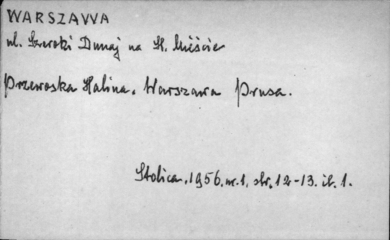 WARSZAWA
ul. Szeroki Dunaj na St. Mieście
Przewoska Halina, Warszawa Prusa.
Stolica, 1956. nr. 1, str. 12-13. il. 1.